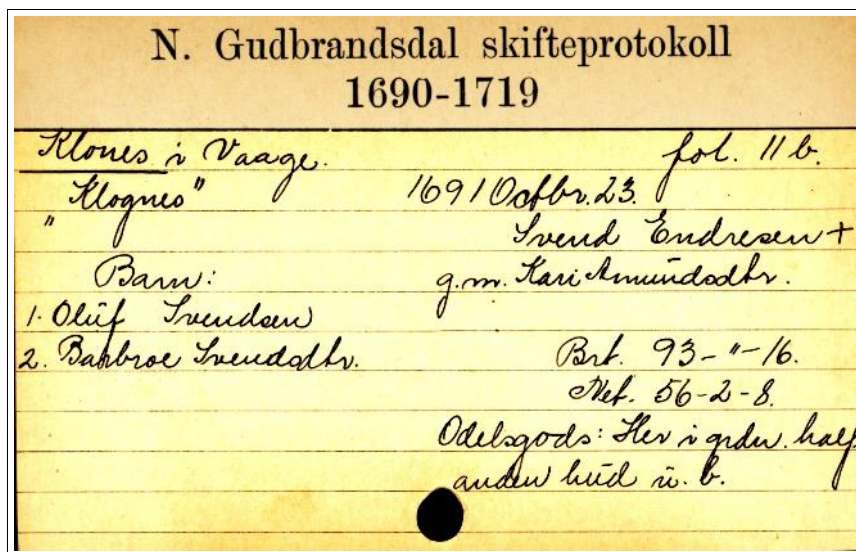 N. Gudbrandsdal skifteprotokoll
1690-1719
Klones i Vaage. fol. 11 b.
"Klognes" 1691 Octbr. 23.
Svend Endresen +
Barn: g.m. Kari Amundsdtr.
1. Oluf Svendsen
2. Barbroe Svendsdtr. Brt. 93-"-16.
Net. 56-2-8.
Odelsgods: Her i grdn. half
anden hud u. b.